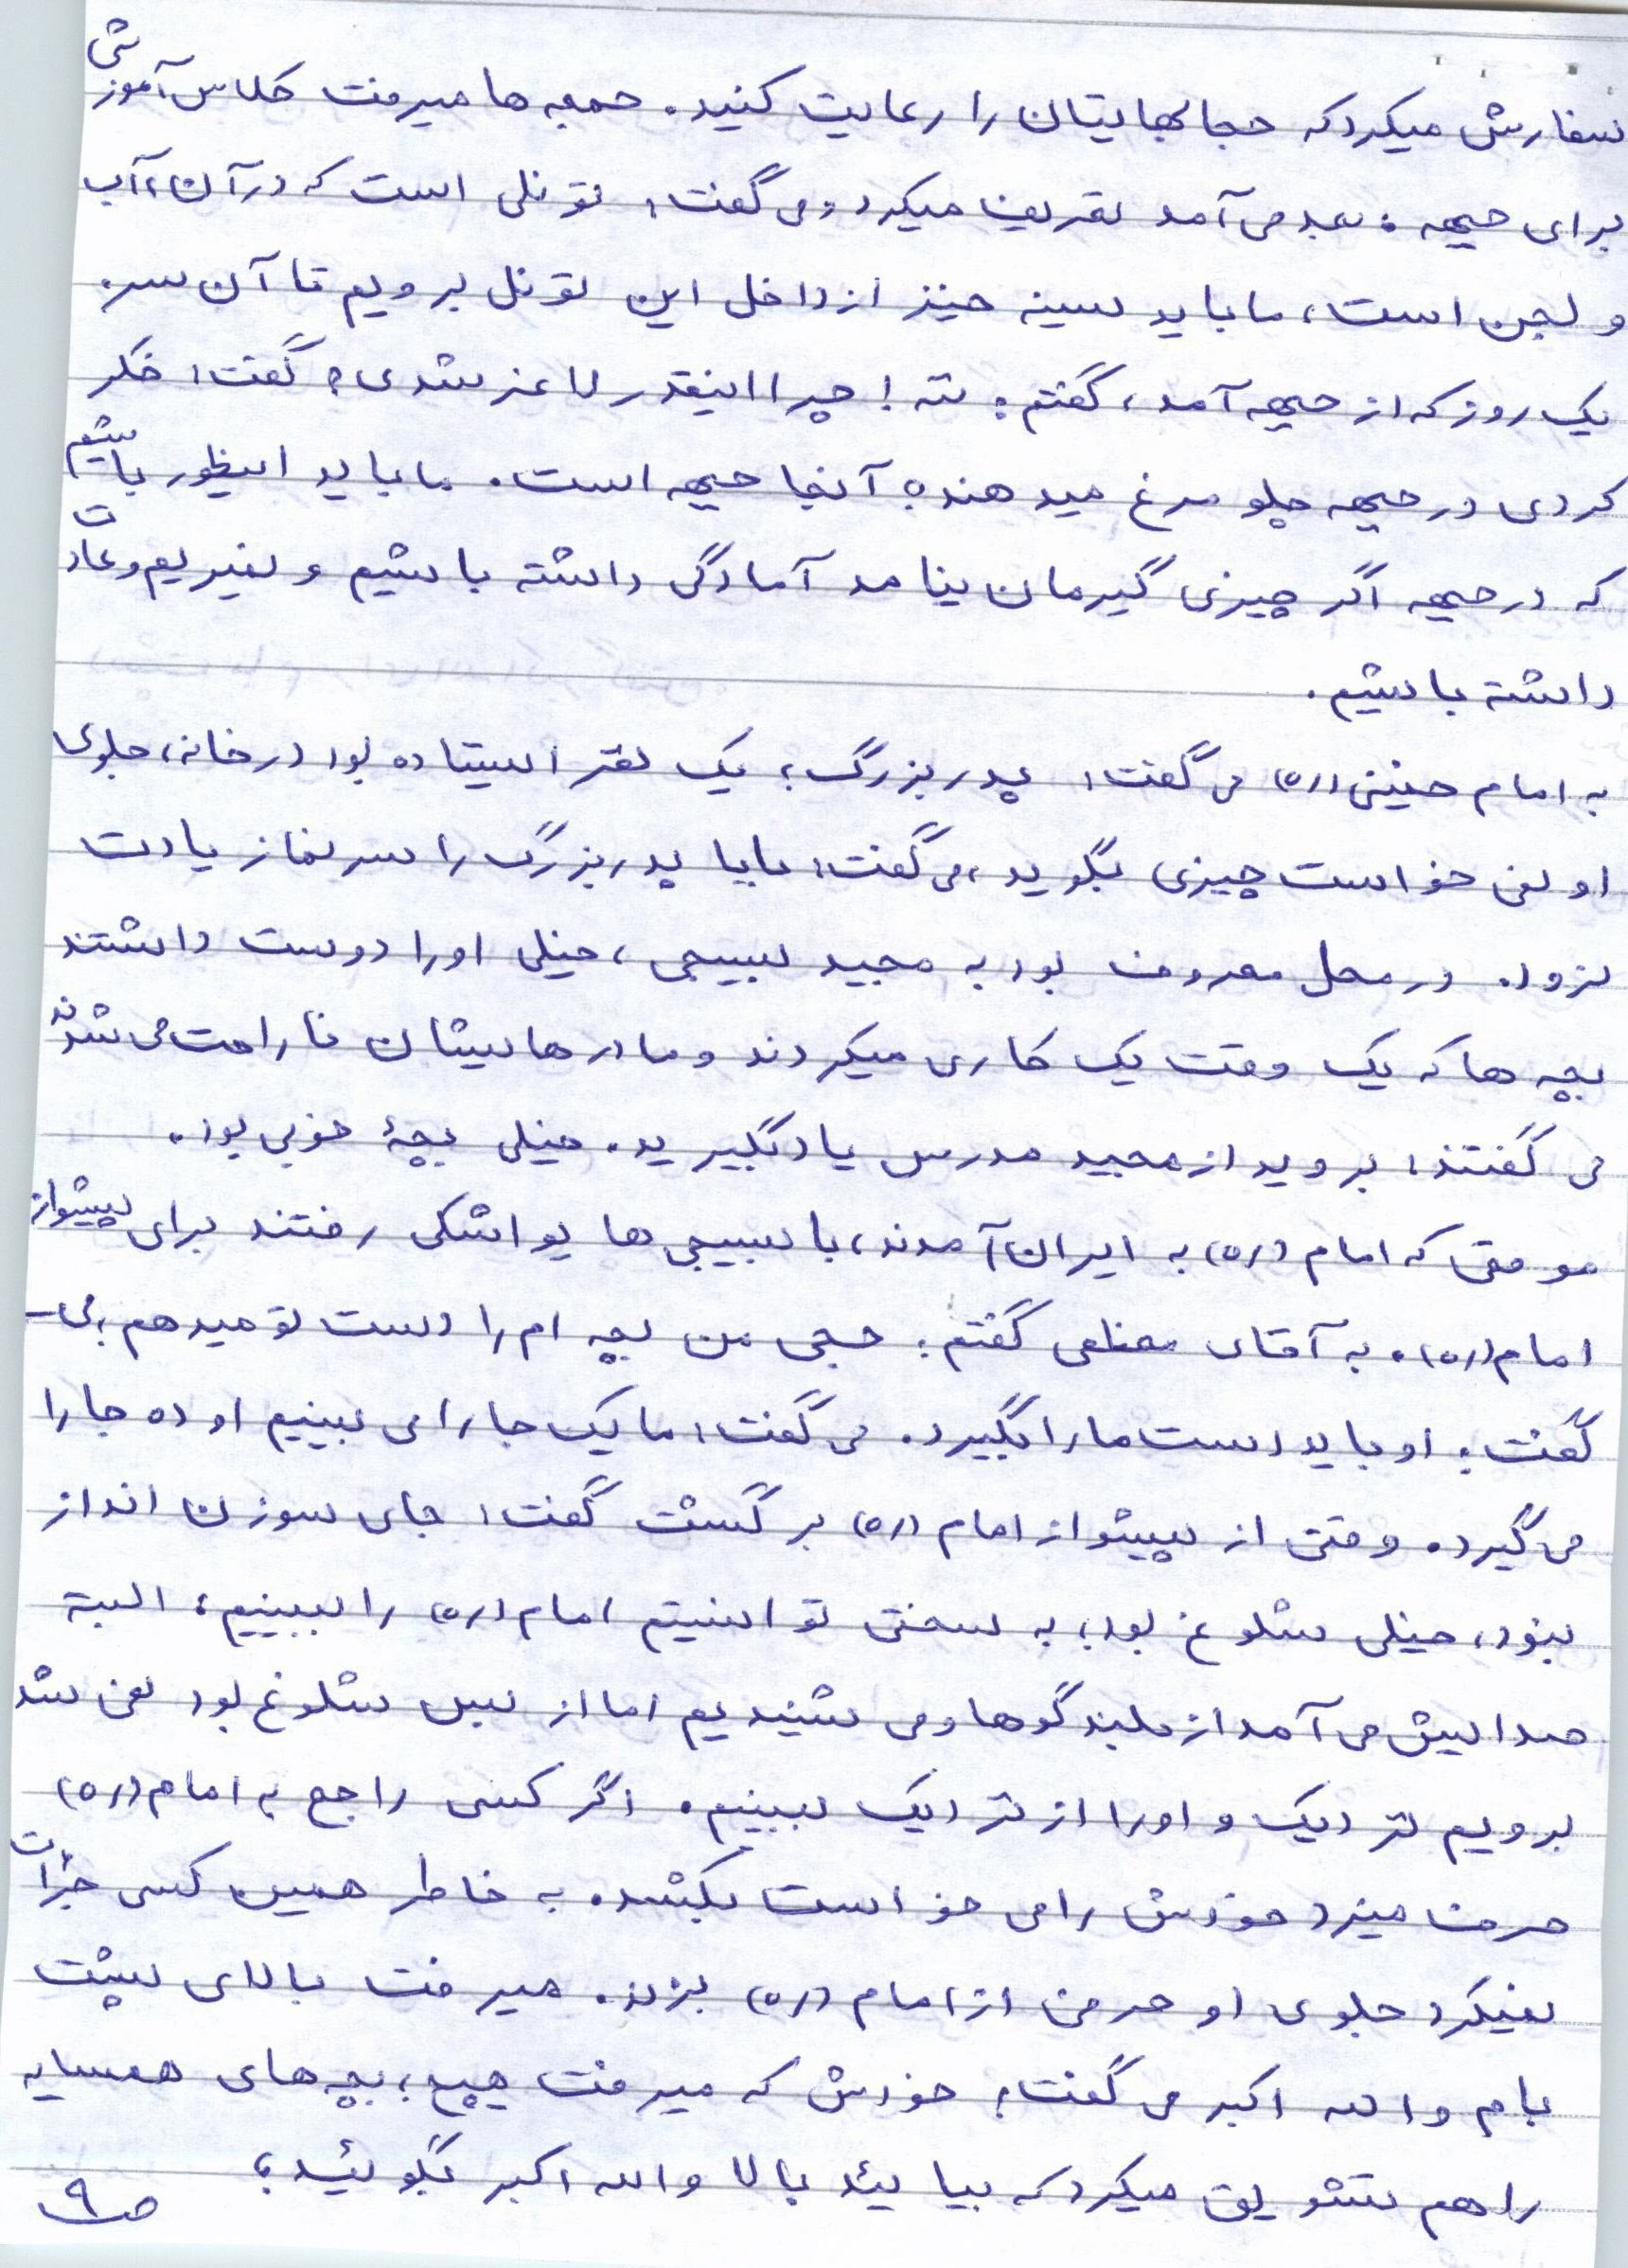 سفارش میکرد که حجابهایتان را رعایت کنید. جمعه ها میرفت کلاس آموزشی
برای جبهه؛ بعد می آمد تعریف میکرد و می گفت: تونلی است که در آن، آب
و لجن است، ما باید سینه خیز از داخل این تونل برویم تا آن سر.
یک روز که از جبهه آمد، گفتم: ننه! چرا اینقدر لاغر شدی؟ گفت: فکر
کردی در جبهه چلو مرغ میدهند؟ آنجا جبهه است. ما باید اینطور باشیم
که در جبهه اگر چیزی گیرمان نیامد آمادگی داشته باشیم و نمیریم و عادت
داشته باشیم.
به امام خمینی (ره) می گفت: پدر بزرگ؛ یک نفر ایستاده بود در خانه، جلوی
او نمی خواست چیزی بگوید، می گفت: بابا پدر بزرگ را سر نماز یادت
نرود. در محل معروف بود به مجید بسیجی، خیلی او را دوست داشتند
بچه ها که یک وقت یک کاری میکردند و مادرهایشان ناراحت می شدند
می گفتند: بروید از مجید مدرس یاد بگیرید. خیلی بچهٔ خوبی بود.
موقعی که امام (ره) به ایران آمدند، با بسیجی ها یواشکی رفتند برای پیشواز
امام (ره). به آقای معظمی گفتم: حجی من بچه ام را دست تو میدهم، می-
گفت: او باید دست ما را بگیرد. می گفت: ما یک جا را می بینیم او ده جا را
می گیرد. وقتی از پیشواز امام (ره) برگشت گفت: جای سوزن انداز
نبود، خیلی شلوغ بود؛ به سختی توانستیم امام (ره) را ببینیم؛ البته
صدایش می آمد از بلندگوها و می شنیدیم اما از بس شلوغ بود نمی شد
برویم نزدیک و او را از نزدیک ببینیم. اگر کسی راجع به امام (ره)
حرف میزد خودش را می خواست بکشد. به خاطر همین کسی جرأت
نمیکرد جلوی او حرفی از امام (ره) بزند. میرفت بالای پشت
بام و الله اکبر می گفت؛ خودش که میرفت هیچ؛ بچه های همسایه
را هم تشویق میکرد که بیایید بالا و الله اکبر بگوئید؛
ص۹